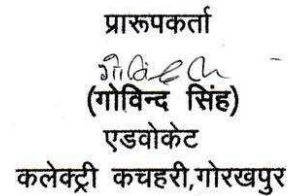 प्रारूपकर्ता
(गोविन्द सिंह)
एडवोकेट
कलेक्ट्री कचहरी,गोरखपुर